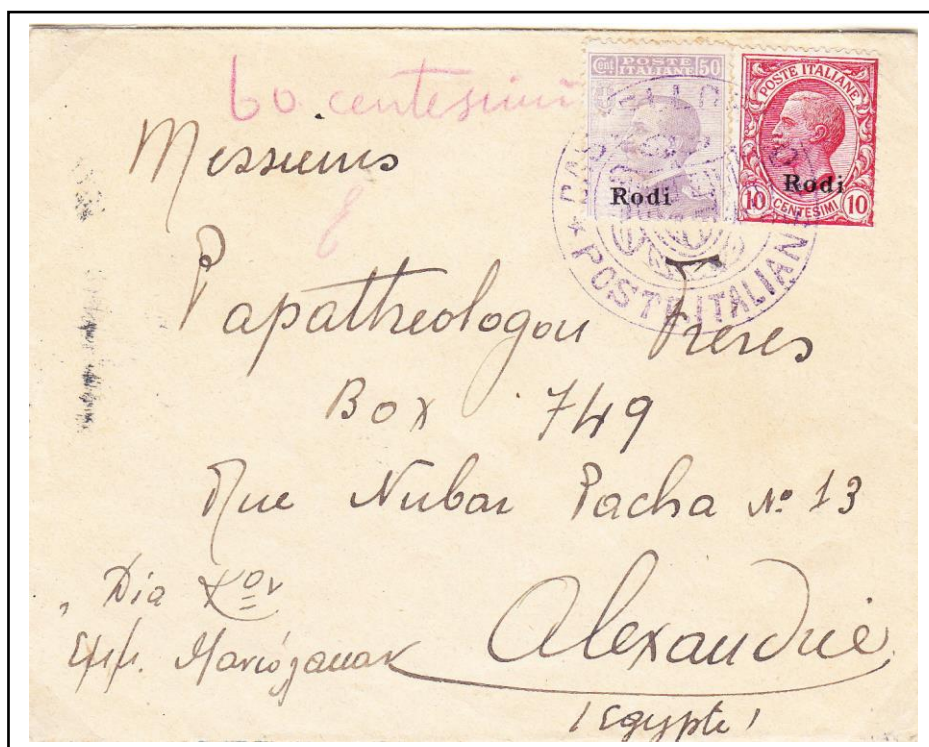 60 centesimi
Cent POSTE 50
ITALIANE
Rodi
POSTE ITALIANE
Rodi
10 CENTESIMI 10
POSTE ITALIAN
Messieurs
Papatheologou Freres
Box 749
Rue Nubar Pacha No 13
Alexandrie
(Egypte)
Δια Χον
Εμμ.